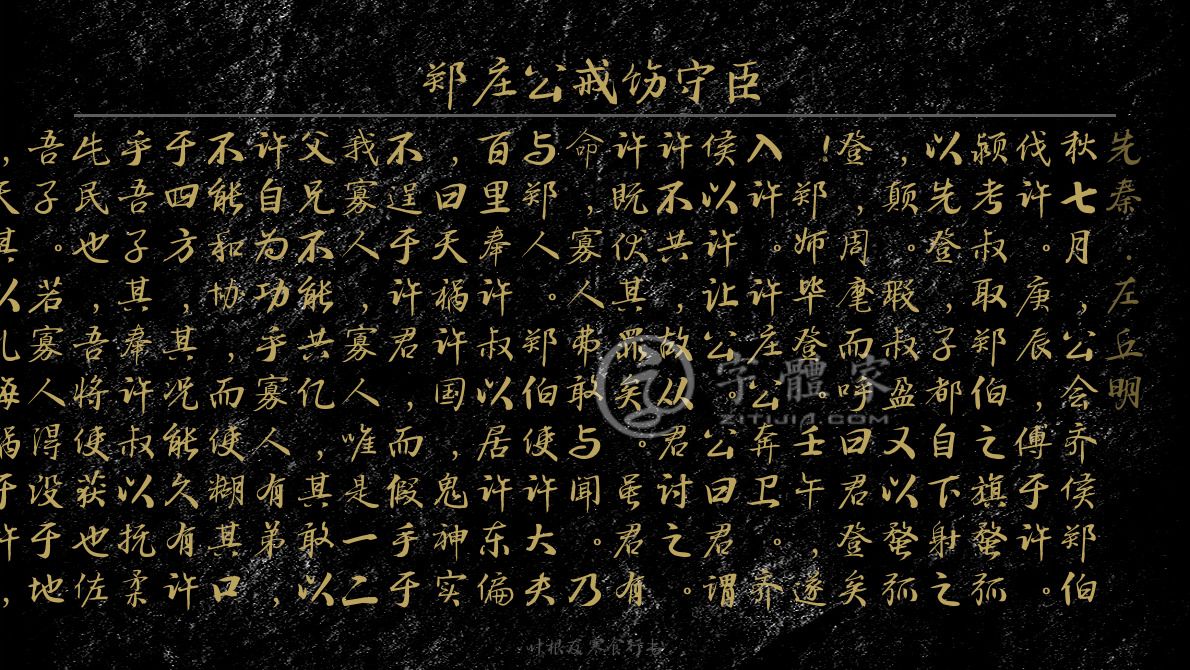 郑庄公戒饬守臣
先秦·左丘明
秋七月,公会齐侯郑伯
伐许。庚辰,傅于许。
颍考叔取郑伯之旗蝥弧
以先登,子都自下射之
,颠。瑕叔盈又以蝥弧
登,周麾而呼曰君登矣
!郑师毕登。壬午,遂
入许。许庄公奔卫。齐
侯以许让公。公曰君谓
许不共,故从君讨之。
许既伏其罪矣。虽君有
命,寡人弗敢与闻。乃
与郑人。郑伯使许大夫
百里奉许叔以居许东偏
,曰天祸许国,鬼神实
不逞于许君,而假手于
我寡人,寡人唯是一二
父兄不能共亿,其敢以
许自为功乎寡人有弟,
不能和协,而使糊其口
于四方,其况能久有许
乎吾子其奉许叔以抚柔
此民也,吾将使获也佐
吾子。若寡人得没于地
,天其以礼悔祸于许,
字體家
ZITIJIA.COM
叶根友寒食行书